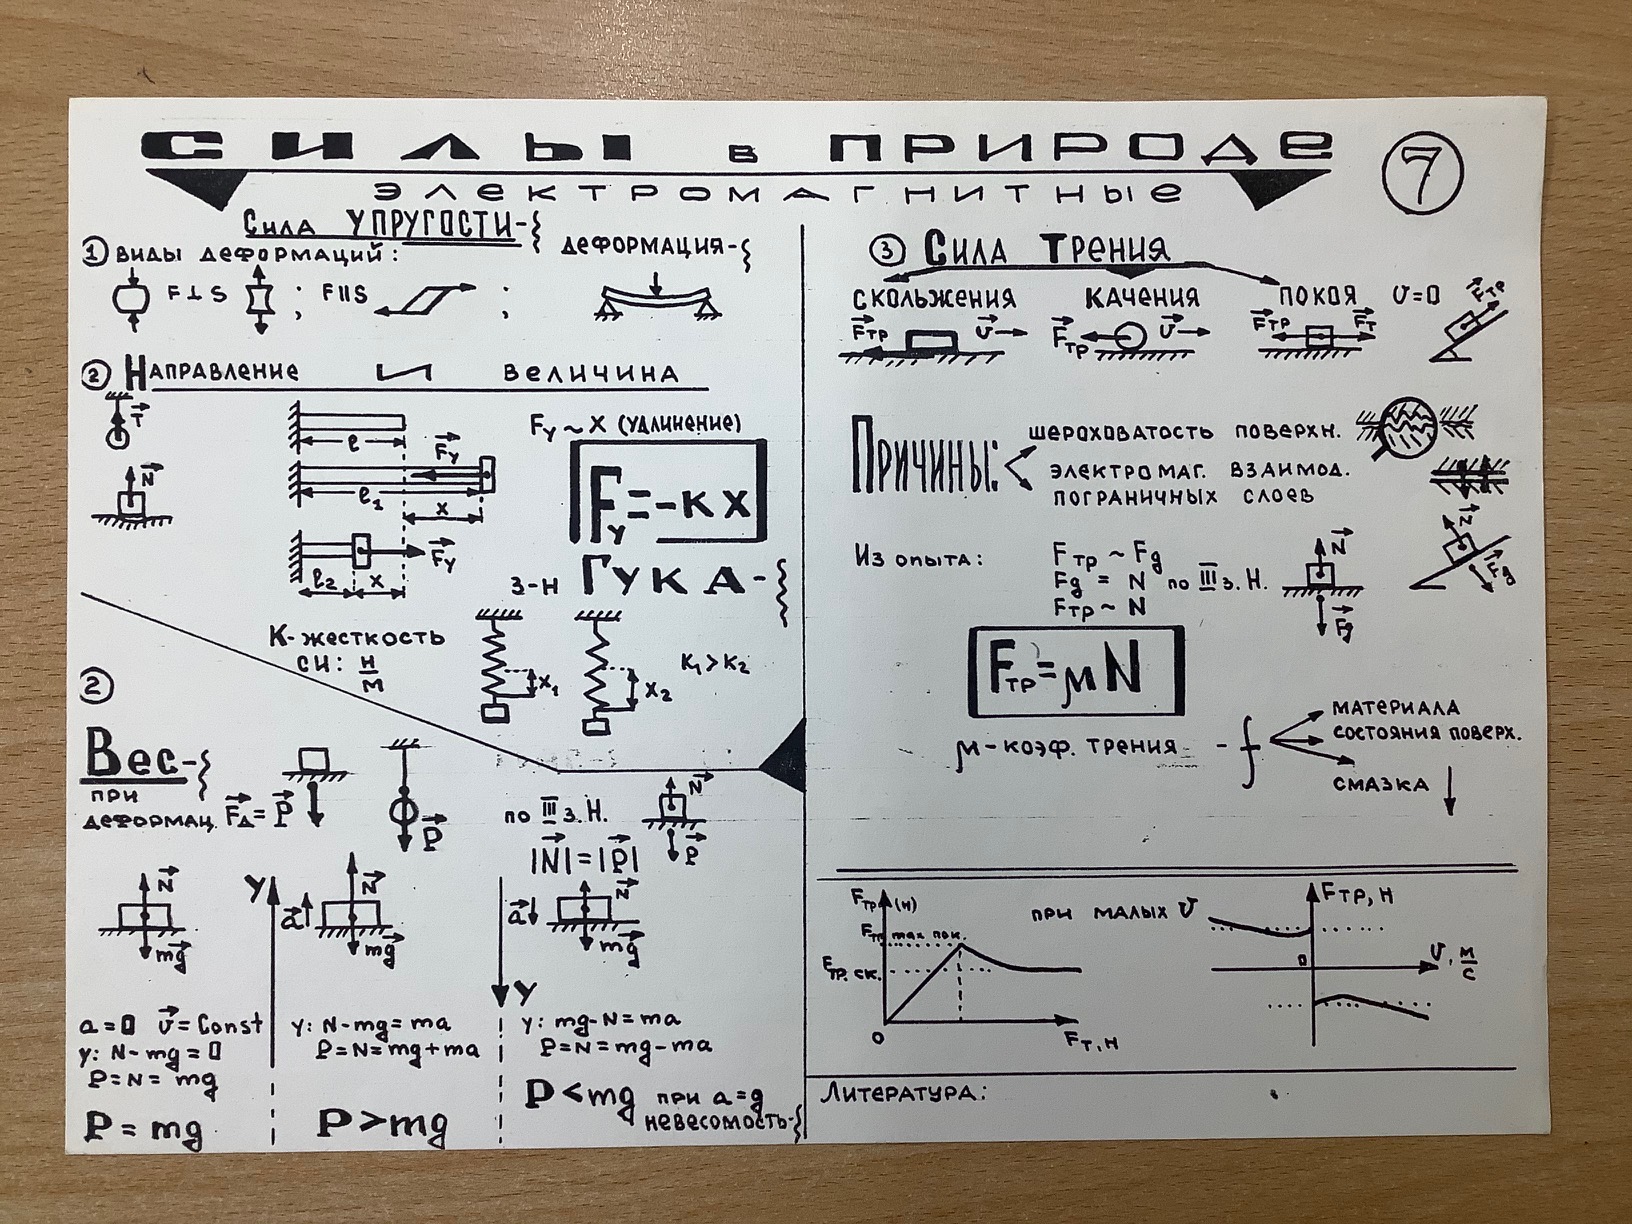 СИЛЫ в ПРИРОДЕ
7
ЭЛЕКТРОМАГНИТНЫЕ
Сила УПРУГОСТИ-
ДЕФОРМАЦИЯ-
1 ВИДЫ ДЕФОРМАЦИЙ:
F⊥S ; F||S ;
2 НАПРАВЛЕНИЕ И ВЕЛИЧИНА
T
N
ℓ
Fу
ℓ1
x
Fу
ℓ2 x
Fу ~ x (УДЛИНЕНИЕ)
Fу = -кx
З-Н ГУКА-
К-ЖЕСТКОСТЬ
СИ: Н/М
x1
x2
К1 > К2
2
ВЕС-
ПРИ
ДЕФОРМАЦ. FД = P
P
ПО III З.Н.
|N| = |P|
N
P
N
mg
Y
a
N
mg
a
N
mg
Y
a=0 v=Const
y: N-mg=0
P=N=mg
P=mg
y: N-mg=ma
P=N=mg+ma
P>mg
y: mg-N=ma
P=N=mg-ma
P<mg ПРИ a=g
НЕВЕСОМОСТЬ-
3 СИЛА ТРЕНИЯ
СКОЛЬЖЕНИЯ КАЧЕНИЯ ПОКОЯ v=0
Fтр v
Fтр v
Fтр Fт
Fтр
ПРИЧИНЫ:
ШЕРОХОВАТОСТЬ ПОВЕРХН.
ЭЛЕКТРОМАГ. ВЗАИМОД.
ПОГРАНИЧНЫХ СЛОЕВ
ИЗ ОПЫТА:
Fтр ~ Fд
Fд = N ПО III З.Н.
Fтр ~ N
N
Fд
N
Fд
Fтр = μN
μ-КОЭФ. ТРЕНИЯ - f
МАТЕРИАЛА
СОСТОЯНИЯ ПОВЕРХ.
СМАЗКА
Fтр (н)
Fтр max пок.
Fтр. ск.
0
Fт, н
ПРИ МАЛЫХ v
Fтр, н
0
v, м/с
ЛИТЕРАТУРА: